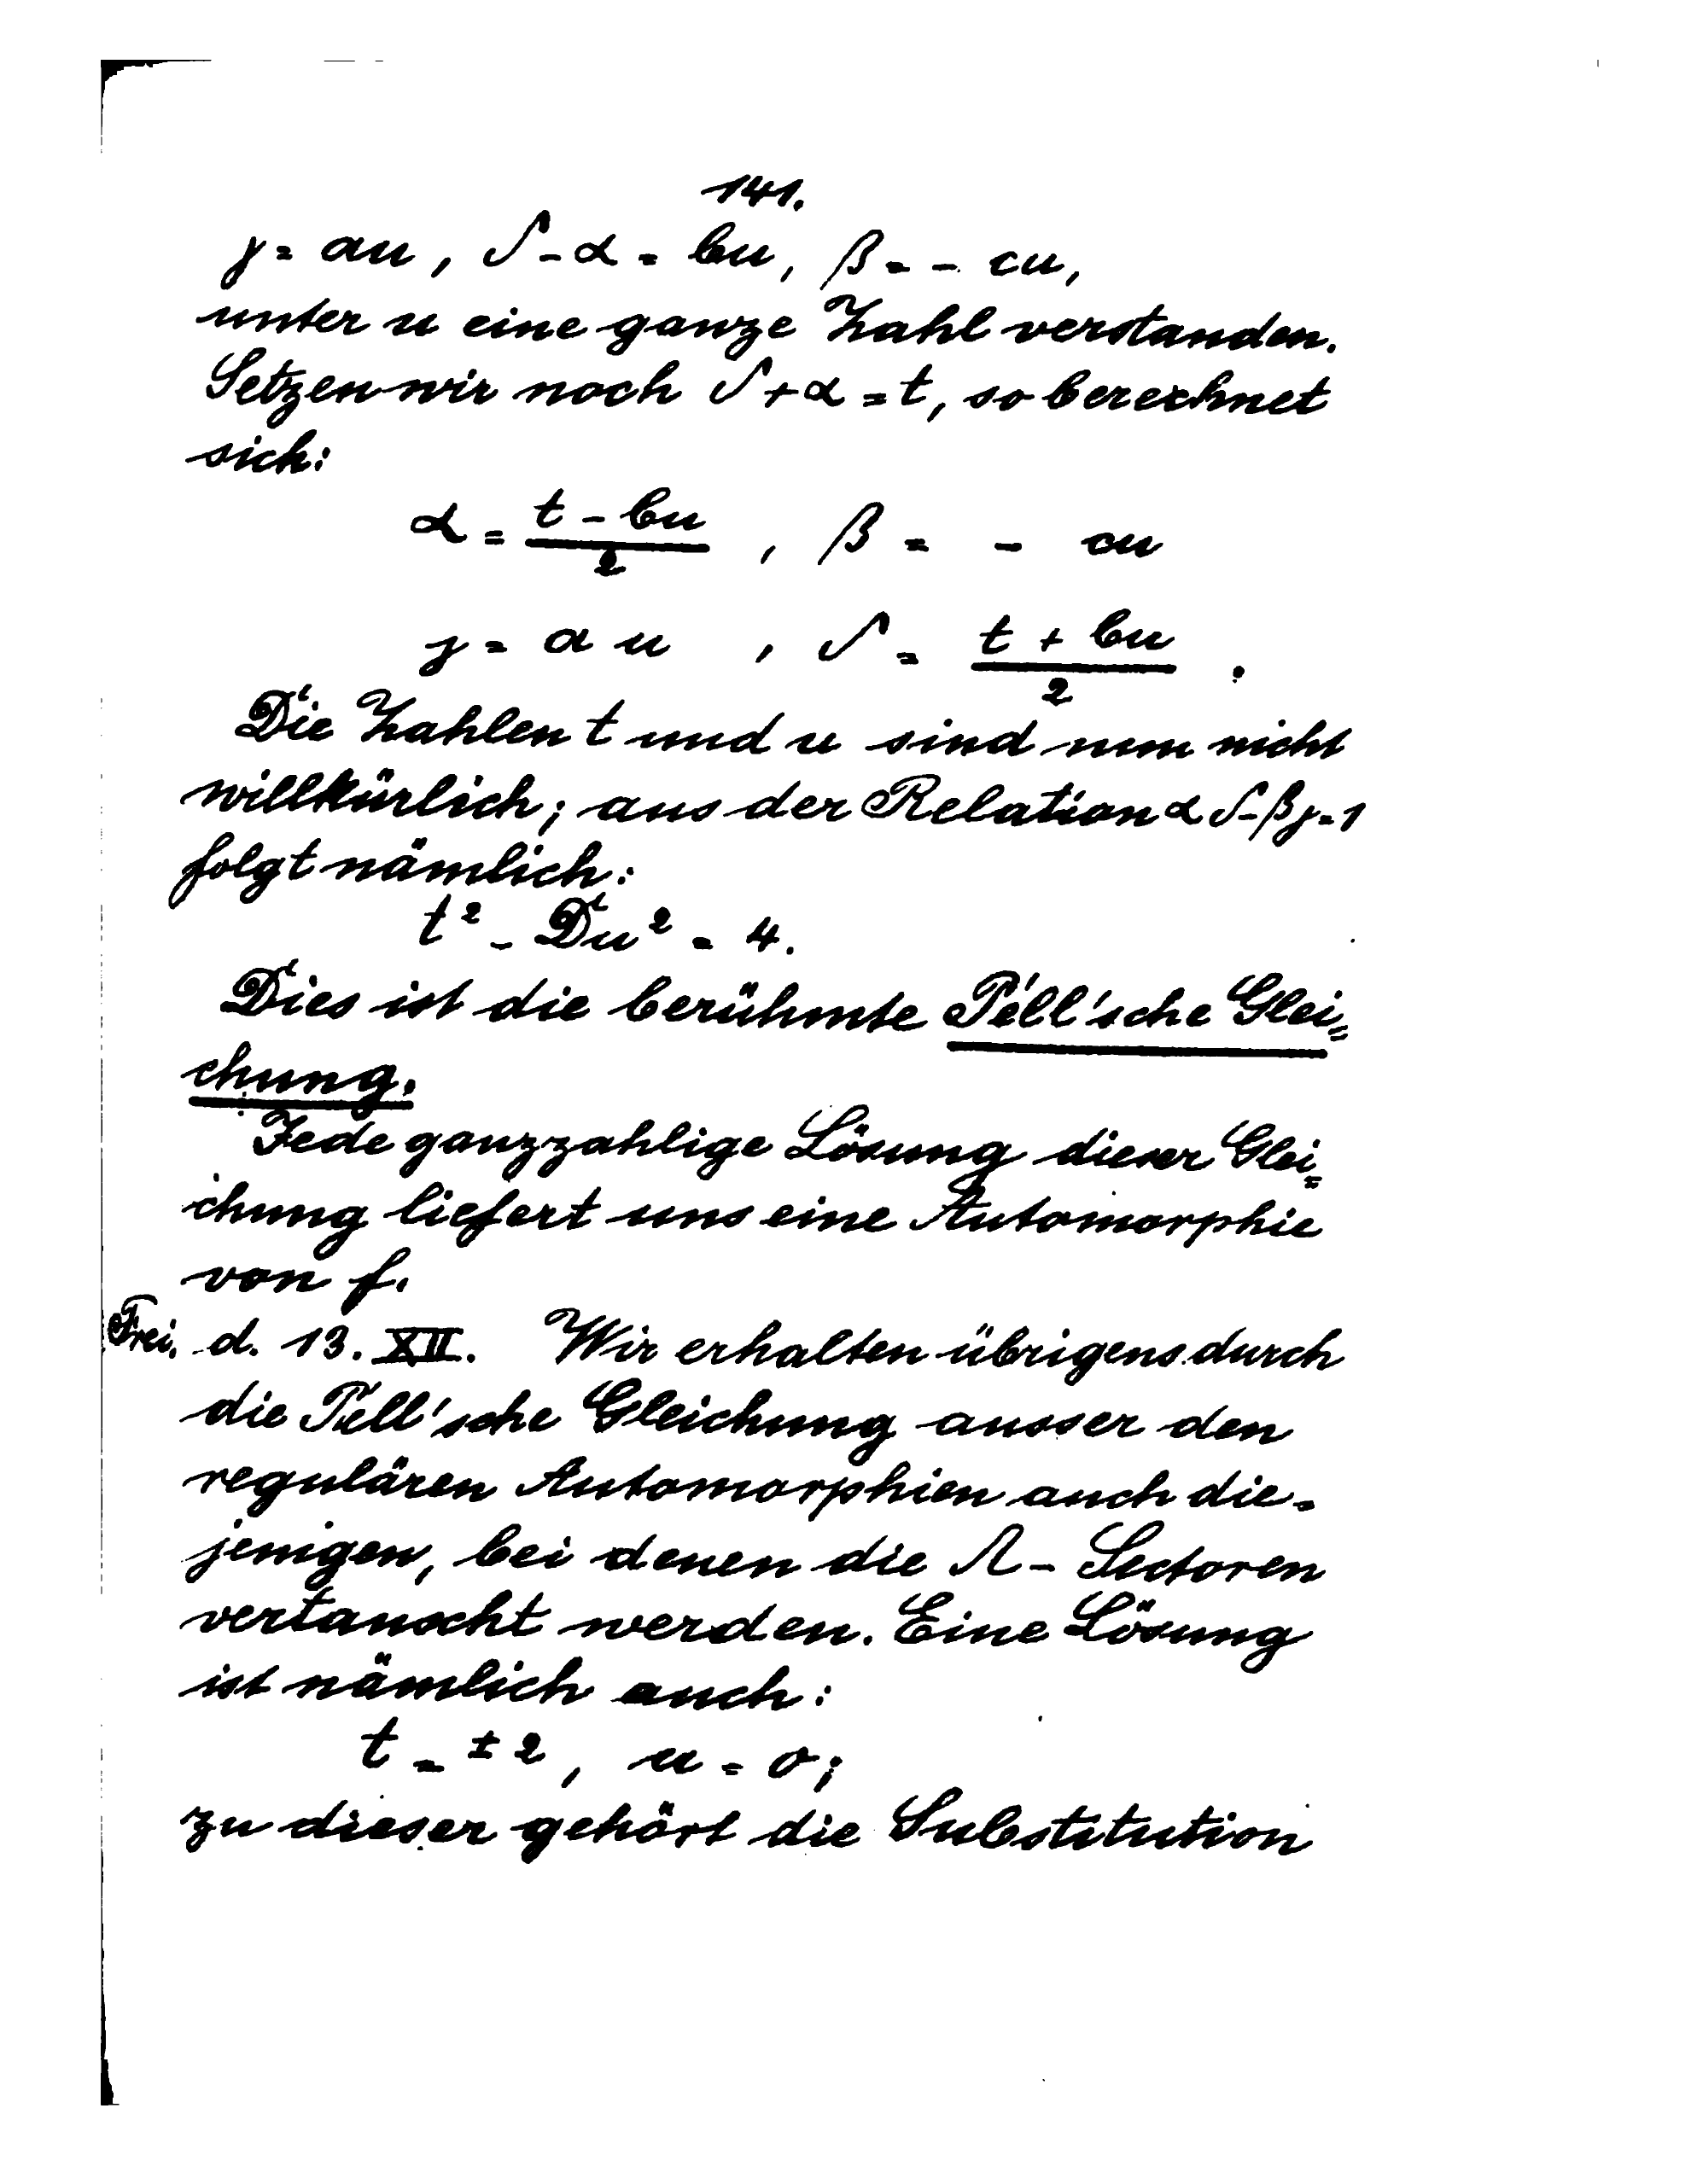 141.
γ = au, δ - α = bu, β = - cu,
unter u eine ganze Zahl verstanden.
Setzen wir noch δ + α = t, so berechnet
sich:
α = (t - bu)/2 , β = - cu
γ = a u , δ = (t + bu)/2 .
Die Zahlen t und u sind nun nicht
willkürlich; aus der Relation α δ - βγ = 1
folgt nämlich:
t² - Du² = 4.
Dies ist die berühmte Pell'sche Glei=
chung.
Jede ganzzahlige Lösung dieser Glei=
chung liefert uns eine Automorphie
von f.
Frei. d. 13. XII. Wir erhalten übrigens durch
die Pell'sche Gleichung ausser den
regulären Automorphien auch die=
jenigen, bei denen die Λ - Sectoren
vertauscht werden. Eine Lösung
ist nämlich auch:
t = ± 2, u = 0;
zu dieser gehört die Substitution